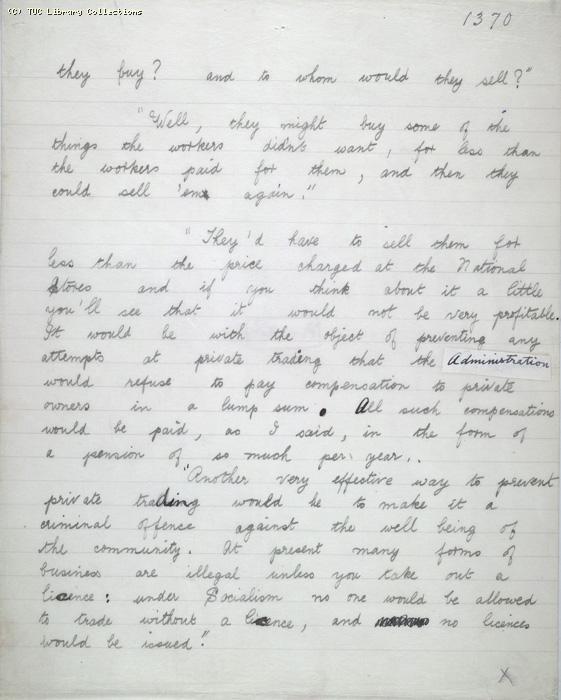 (C) TUC Library Collections
1370
they buy? and to whom would they sell?"
"Well, they might buy some of the
things the workers didn't want, for less than
the workers paid for them, and then they
could sell 'em again."
"They'd have to sell them for
less than the price charged at the National
Stores and if you think about it a little
you'll see that it would not be very profitable.
It would be with the object of preventing any
attempts at private trading that the Administration
would refuse to pay compensation to private
owners in a lump sum. All such compensations
would be paid, as I said, in the form of
a pension of so much per year..
"Another very effective way to prevent
private trading would be to make it a
criminal offence against the well being of
the community. At present many forms of
business are illegal unless you take out a
licence: under Socialism no one would be allowed
to trade without a licence, and no licences
would be issued."
X